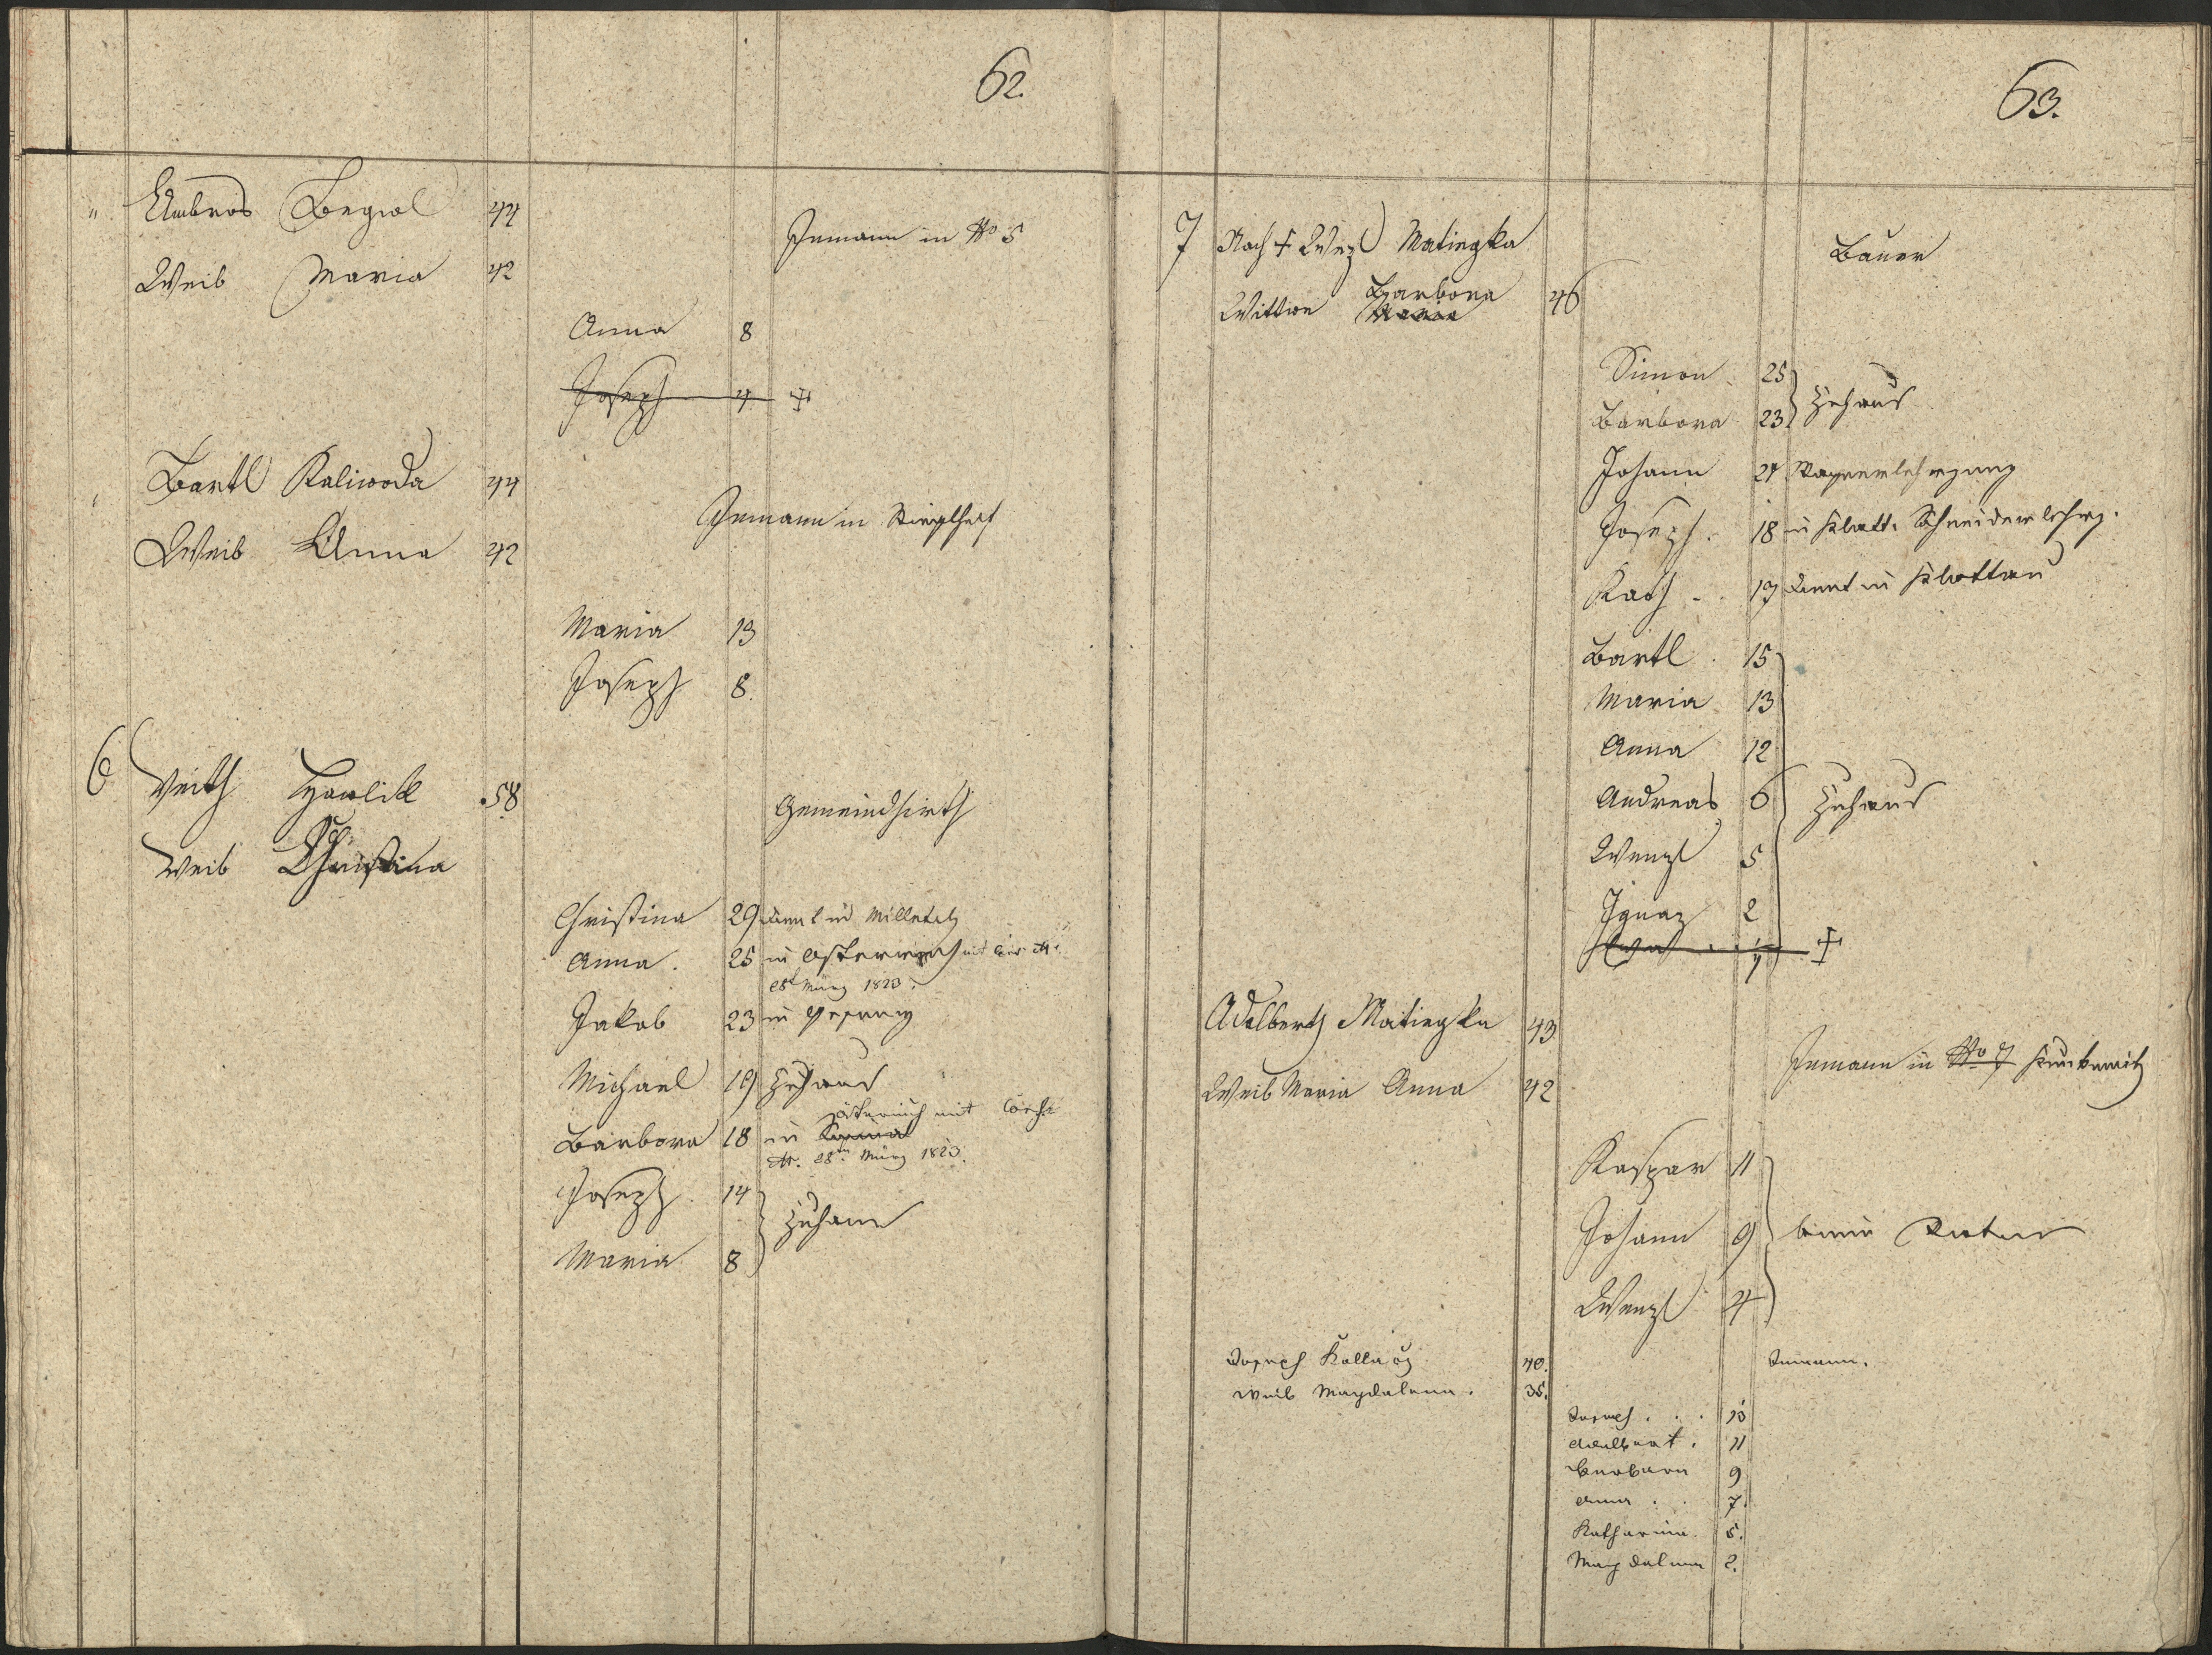 62.
" Ambros Begwl 44
Inmann in No 5
Weib Maria 42
Anna 8
Joseph 4 +
Bartl Kaliwoda 44
Inmann in
Weib Anna 42
Maria 13
Joseph 8.
6 Veith Hawlik 58
Gemeindhirth
Weib Christina
Christina 29 dient in Milletitz
Anna. 25 in Österreich mit
28t März 1823.
Jakob 23 in
Michael 19 Zuhaus
österreich mit
Barbora 18 in
28ten März 1823.
Joseph. 14
Zuhaus
Maria 8
63.
7 Nach + Wzl Matiegka
Bauer
Barbora
Wittwe Maria 46
Simon 25
Zuhaus
Barbora 23
Johann 21 Wagnerlehrjung
Joseph. 18 in Klatt. Schneiderlehrj.
Kath. 17 dient in Klattau
Bartl. 15
Maria 13
Anna 12
Andreas 6 Zuhaus
Wenzl 5
Ignaz 2
+
Adalbert Matiegka 43
Inmann in No 7
Weib Maria Anna 42
Kaspar 11
Johann 9 beim Vater
Wenzl 4
Joseph 40. Inmann.
Weib Magdalena. 35.
Joseph . . . 13
Adalbert. 11
Barbara 9
Anna . . 7.
Katharina. 5.
Magdalena 2.